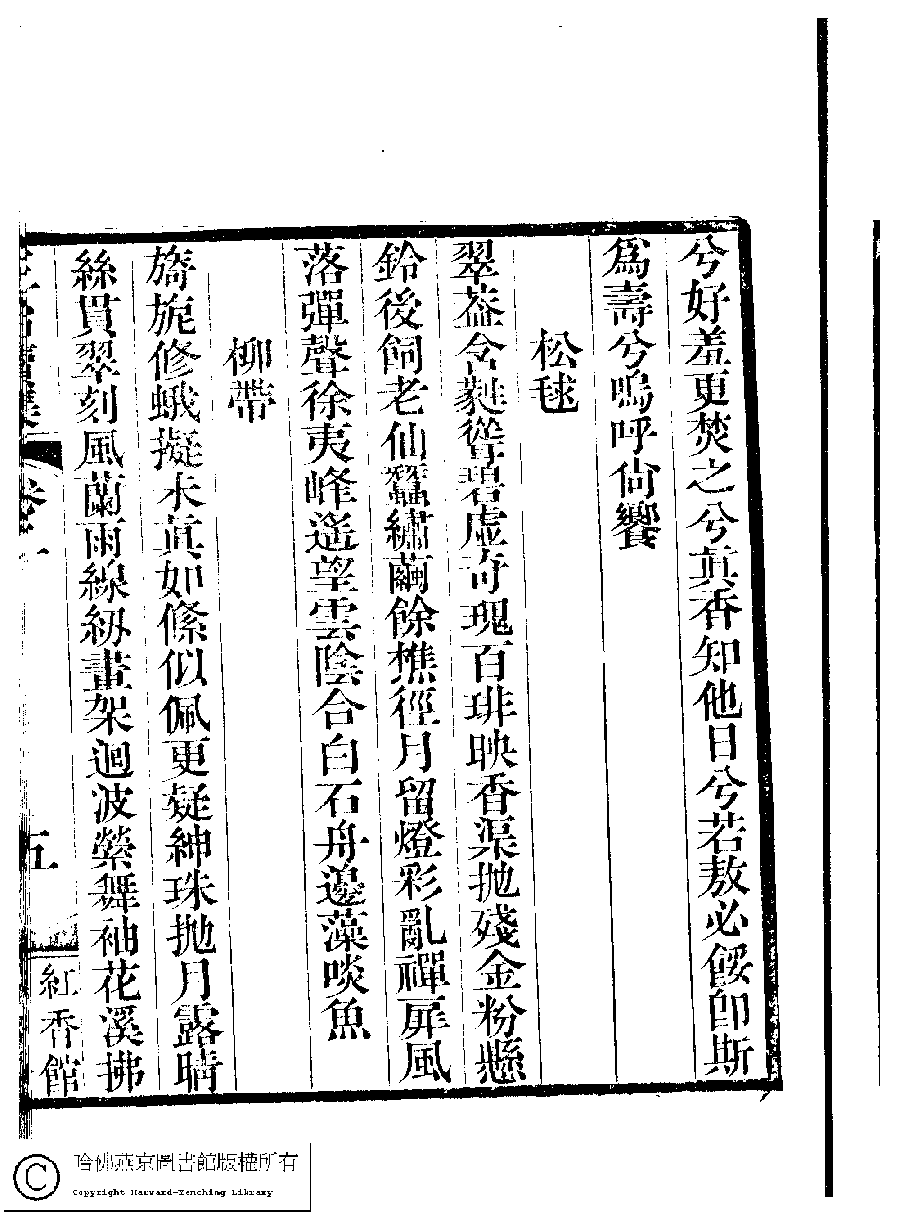 兮好羞更焚之兮眞香知他日兮若敖必餒卽斯
爲壽兮嗚呼尙饗
松毬
翠葢含蕤聳碧虛奇瑰百琲映香渠抛殘金粉懸
鈴後飼老仙蠶繡繭餘樵徑月留燈彩亂禪扉風
落彈聲徐夷峰遥望雲陰合白石舟邊藻啖魚
柳帶
旖旎修蛾擬未眞如絛似佩更疑紳珠抛月露晴
絲貫翠刻風蘭雨線紉畫架迴波縈舞袖花溪拂
卷一
五
紅香館
哈佛燕京圖書館版權所有
Copyright Harvard-Yenching Library